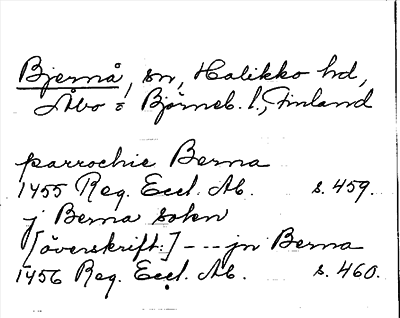 Bjernå, sn, Halikko hd,
Åbo = Björneb. l., Finland
parrochie Berna
1455 Reg. Eccl. Ab. s. 459.
j Berna sokn
[överskrift:] --- jn Berna
1456 Reg. Eccl. Ab. s. 460.